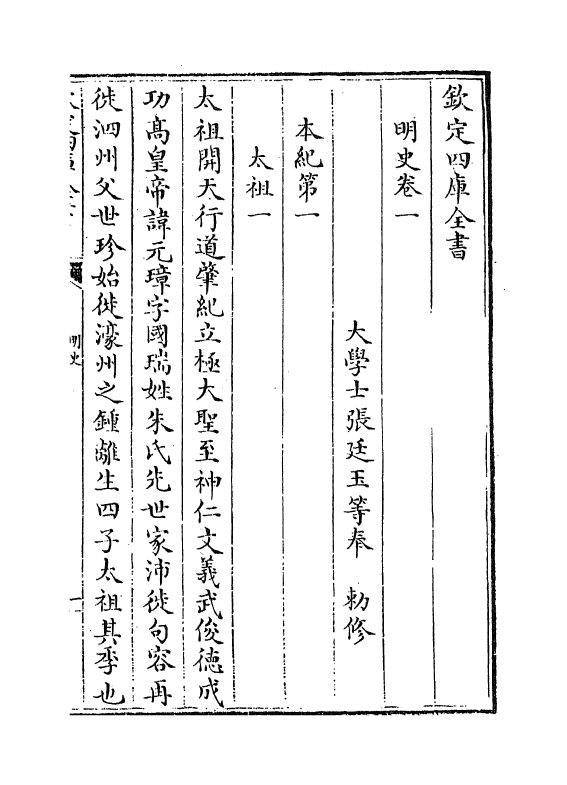 欽定四庫全書
明史卷一
大學士張廷玉等奉　勅修
本紀第一
太祖一
太祖開天行道肇紀立極大聖至神仁文義武俊徳成
功髙皇帝諱元璋字國瑞姓朱氏先世家沛徙句容再
徙泗州父世珍始徙濠州之鍾離生四子太祖其季也
明史
一